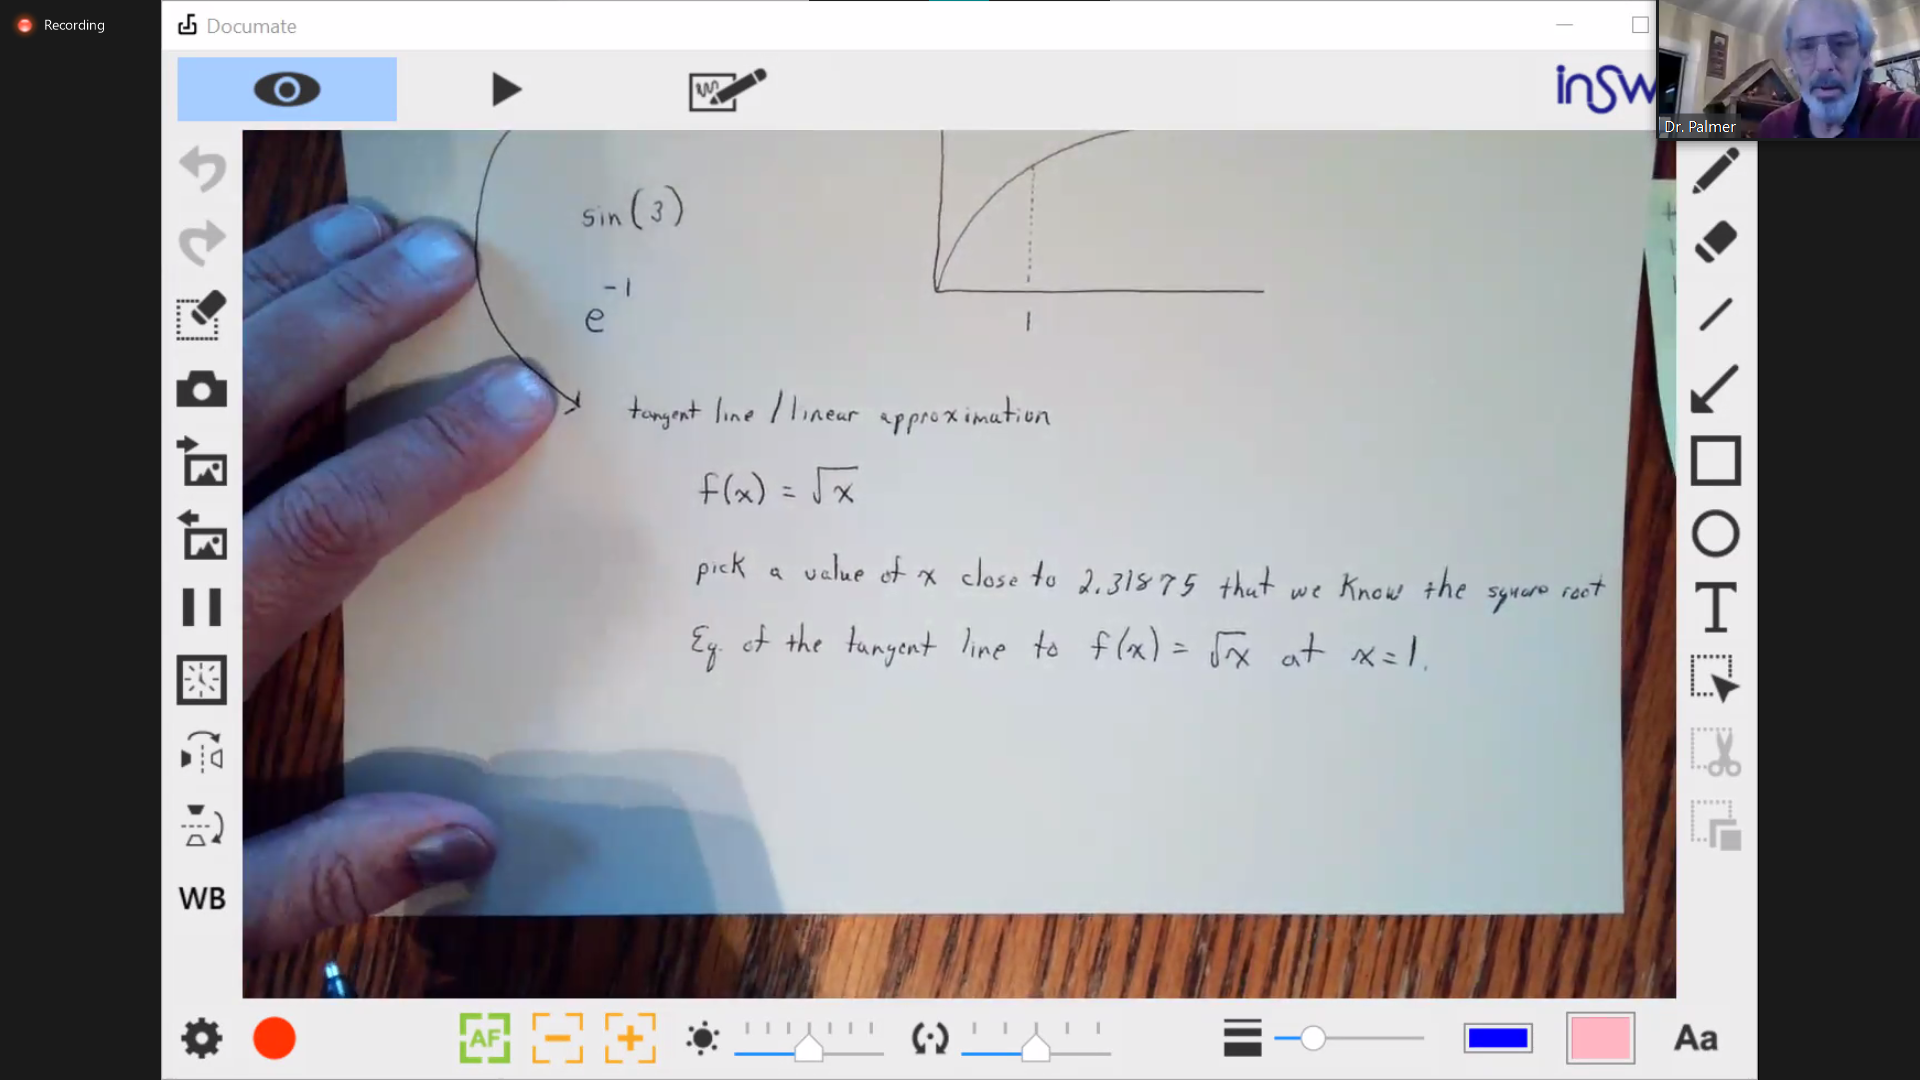 Recording
Documate
inSw
Dr. Palmer
sin(3)
e^{-1}
1
tangent line / linear approximation
f(x) = √x
pick a value of x close to 2.31875 that we know the square root
Eq. of the tangent line to f(x) = √x at x=1.
WB
AF
T
Aa